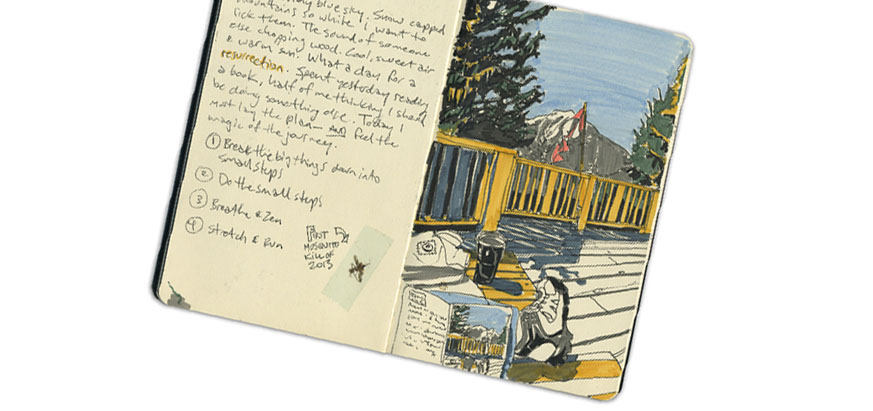 blue sky. Snow capped
mountains so white I want to
lick them. The sound of someone
else chopping wood. Cool, sweet air
& warm sun. What a day for a
resurrection. Spent yesterday reading
a book, half of me thinking I should
be doing something else. Today I
must lay the plan — AND feel the
magic of the journey.
① Break the big things down into
small steps
② Do the small steps
③ Breathe & Zen
④ Stretch & Run
MOSQUITO
Kill of
2013